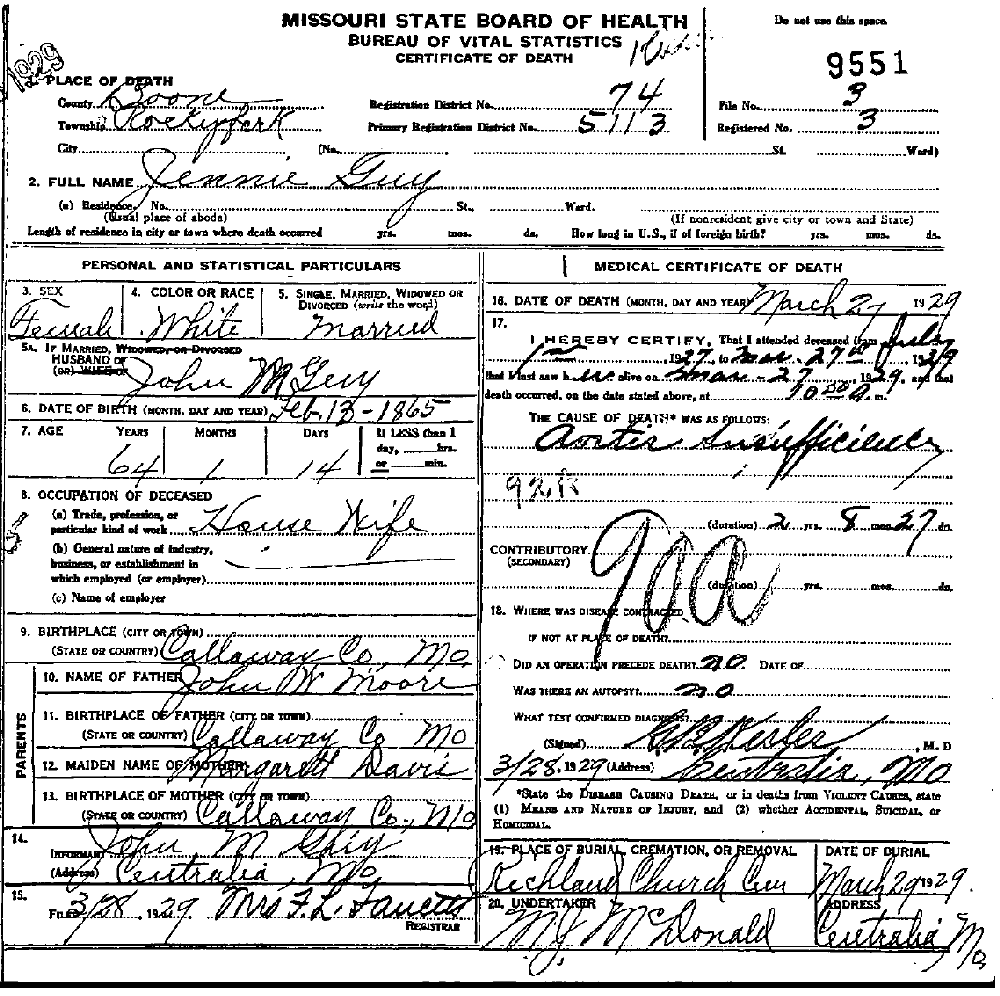 MISSOURI STATE BOARD OF HEALTH
BUREAU OF VITAL STATISTICS
CERTIFICATE OF DEATH
Do not use this space.
9551
1929
1. PLACE OF DEATH
County Boone Registration District No. 74 File No. 3
Township Rockyfork Primary Registration District No. 5113 Registered No. 3
City (No. St. Ward)
2. FULL NAME Jennie Guy
(a) Residence. No. St., Ward.
(Usual place of abode) (If nonresident give city or town and State)
Length of residence in city or town where death occurred yrs. mos. ds. How long in U.S., if of foreign birth? yrs. mos. ds.
PERSONAL AND STATISTICAL PARTICULARS
3. SEX 4. COLOR OR RACE 5. SINGLE, MARRIED, WIDOWED OR DIVORCED (write the word)
Female White Married
5A. IF MARRIED, WIDOWED OR DIVORCED
HUSBAND OF
(OR) WIFE OF John M Guy
6. DATE OF BIRTH (MONTH, DAY AND YEAR) Feb. 13 - 1865
7. AGE YEARS MONTHS DAYS If LESS than 1 day, hrs. or min.
64 1 14
8. OCCUPATION OF DECEASED
(a) Trade, profession, or
particular kind of work House Wife
(b) General nature of industry,
business, or establishment in
which employed (or employer)
(c) Name of employer
9. BIRTHPLACE (CITY OR TOWN)
(STATE OR COUNTRY) Callaway Co, Mo
PARENTS
10. NAME OF FATHER John W Moore
11. BIRTHPLACE OF FATHER (CITY OR TOWN)
(STATE OR COUNTRY) Callaway Co Mo
12. MAIDEN NAME OF MOTHER Margarett Davis
13. BIRTHPLACE OF MOTHER (CITY OR TOWN)
(STATE OR COUNTRY) Callaway Co, Mo
14.
INFORMANT John M Guy
(Address) Centralia, Mo
15.
FILED 3/28 1929 Mrs F. L.
REGISTRAR
MEDICAL CERTIFICATE OF DEATH
16. DATE OF DEATH (MONTH, DAY AND YEAR) March 27 1929
17.
I HEREBY CERTIFY, That I attended deceased from July
1927 to Mar 27th 1929
that I last saw her alive on Mar - 27, 1929, and that
death occurred, on the date stated above, at m.
THE CAUSE OF DEATH* WAS AS FOLLOWS:
Aortic Insufficiency
(duration) 2 yrs. 8 mos. 27 ds.
CONTRIBUTORY
(SECONDARY)
90a
(duration) yrs. mos. ds.
18. WHERE WAS DISEASE CONTRACTED
IF NOT AT PLACE OF DEATH?
DID AN OPERATION PRECEDE DEATH? no DATE OF
WAS THERE AN AUTOPSY? no
WHAT TEST CONFIRMED DIAGNOSIS?
(Signed) , M. D
3/28, 1929 (Address) Centralia, Mo
*State the DISEASE CAUSING DEATH, or in deaths from VIOLENT CAUSES, state
(1) MEANS AND NATURE OF INJURY, and (2) whether ACCIDENTAL, SUICIDAL, or
HOMICIDAL.
19. PLACE OF BURIAL, CREMATION, OR REMOVAL DATE OF BURIAL
Richland Church Cem March 29 1929
20. UNDERTAKER ADDRESS
M J McDonald Centralia Mo